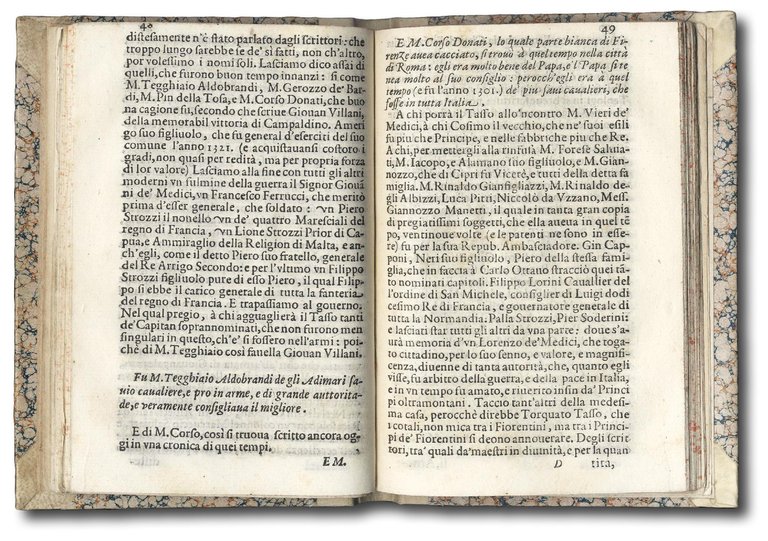 48
distesamente n'è stato parlato dagli scrittori: che
troppo lungo sarebbe ie de' si fatti, non ch'altro,
por volessimo i nomi soli. Lasciamo dico assai di
quelli, che furono buon tempo innanzi: sì come
M. Tegghiaio Aldobrandi, M. Gerozzo de' Bar
di, M. Pin della Tosa, e M. Corso Donati, che buo
na cagione fu, secondo che scriue Giouan Villani,
della memorabil vittoria di Campaldino. Ameri
go suo figliuolo, che fu general d'eserciti del suo
comune l'anno 1321. (e acquistauansi costoro i
gradi, non quasi per redità, ma per propria forza
di lor valore) Lasciamo alla fine con tutti gli altri
moderni vn fulmine della guerra il Signor Gioua
ni de' Medici, vn Francesco Ferrucci, che meritò
prima d'esser generale, che soldato: vn Piero
Strozzi il nonello vn de' quattro Marescialli del
regno di Francia, vn Lione Strozzi Prior di Ca-
pua, e Ammiraglio della Religion di Malta, e an-
ch'egli, come il detto Piero suo fratello, generale
del Re Arrigo Secondo: e per l'vltimo vn Filippo
Strozzi figliuolo pure di esso Piero, il qual Filip-
po si ebbe il carico generale di tutta la fanteria
del regno di Francia. E trapassiamo al gouerno.
Nel qual pregio, à chi agguaglierà il Tasso tanti
de' Capitan soprannominati, che non furono men
singulari in questo, ch'e' si fossero nell'armi: poi-
chè di M. Tegghiaio così fauella Giouan Villani.
Fu M. Tegghiaio Aldobrandi de gli Adimari sa-
uio caualiere, e pro in arme, e di grande autorita-
de, e veramente consigliaua il migliore.
E di M. Corso, così si truoua scritto ancora og-
gi in vna cronica di quei tempi.
E M.
49
E M. Corso Donati, lo quale parte bianca di Fi-
renze auea cacciato, si trouò à quel tempo nella città
di Roma: egli era molto bene del Papa, e'l Papa si te
nea molto al suo consiglio: perocch'egli era à quel
tempo (e fu l'anno 1301.) de' piu saui caualieri, che
fosse in tutta Italia.
A chi porrà il Tasso allo'ncontro M. Vieri de'
Medici, à chi Cosimo il vecchio, che ne' suoi esili
fu piu che Principe, e nelle fabbriche piu che Re.
A chi, per mettergli alla rinfusa M. Forese Saluia-
ti, M. Iacopo, e Alamano suo figliuolo, e M. Gian-
nozzo, che di Cipri fu Vicerè, e tutti della detta fa
miglia. M. Rinaldo Gianfigliazzi, M. Rinaldo de-
gli Albizzi, Luca Pitti, Niccolò da Vzzano, Mess.
Giannozzo Manetti, il quale in tanta gran copia
di pregiatissimi soggetti, che ella aueua in quel tẽ
po, ventinoue volte (e le patenti ne sono in esse-
re) fu per la sua Repub. Ambasciadore. Gin Cap-
poni, Neri suo figliuolo, Piero della stessa fami-
glia, che in faccia à Carlo Ottauo stracciò quei tã-
to nominati capitoli. Filippo Lorini Cauallier del
l'ordine di San Michele, consiglier di Luigi dodi
cesimo Re di Francia, e gouernatore generale di
tutta la Normandia. Palla Strozzi, Pier Soderini:
e lasciati star tutti gli altri da vna parte: doue s'a-
urà memoria d'vn Lorenzo de' Medici, che toga-
to cittadino, per lo suo senno, e valore, e magnifi-
cenza, diuenne di tanta autorità, che, quanto egli
visse, fu arbitro della guerra, e della pace in Italia,
e in vn tempo fu amato, e riuerito insin da' Princi
pi oltramontani. Taccio tant'altri della medesi-
ma casa, perocchè direbbe Torquato Tasso, che
i cotali, non mica tra i Fiorentini, ma tra i Princi-
pi de' Fiorentini si deono annouerare. Degli scrit
tori, tra' quali da' maestri in diuinità, e per la quan
D tita,